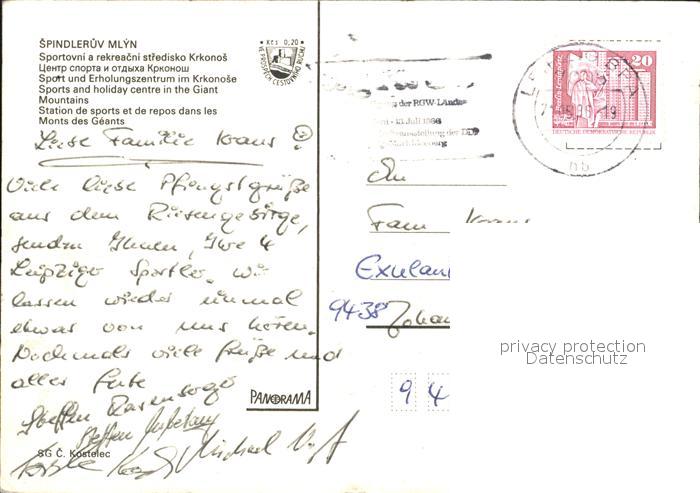 ŠPINDLERŮV MLÝN
Sportovní a rekreační středisko Krkonoš
Центр спорта и отдыха Крконош
Sport und Erholungszentrum im Krkonoše
Sports and holiday centre in the Giant
Mountains
Station de sports et de repos dans les
Monts des Géants
Kčs 0,20
VE PROSPĚCH CESTOVNÍHO RUCHU
Liebe Familie Kraus!
Viele liebe Pfingstgrüße
aus dem Riesengebirge,
senden Ihnen, Ihre 4
Leipziger Sportler. Wir
lassen wieder einmal
etwas von uns hören.
Nochmals viele Grüße und
alles Gute
Steffen
Steffen
Michael
SG Č. Kostelec
PANORAMA
der RGW-Länder
13. Juli 1986
20
DEUTSCHE DEMOKRATISCHE REPUBLIK
An
Fam Kraus
Exulan
9438 Johan
9 4
privacy protection
Datenschutz